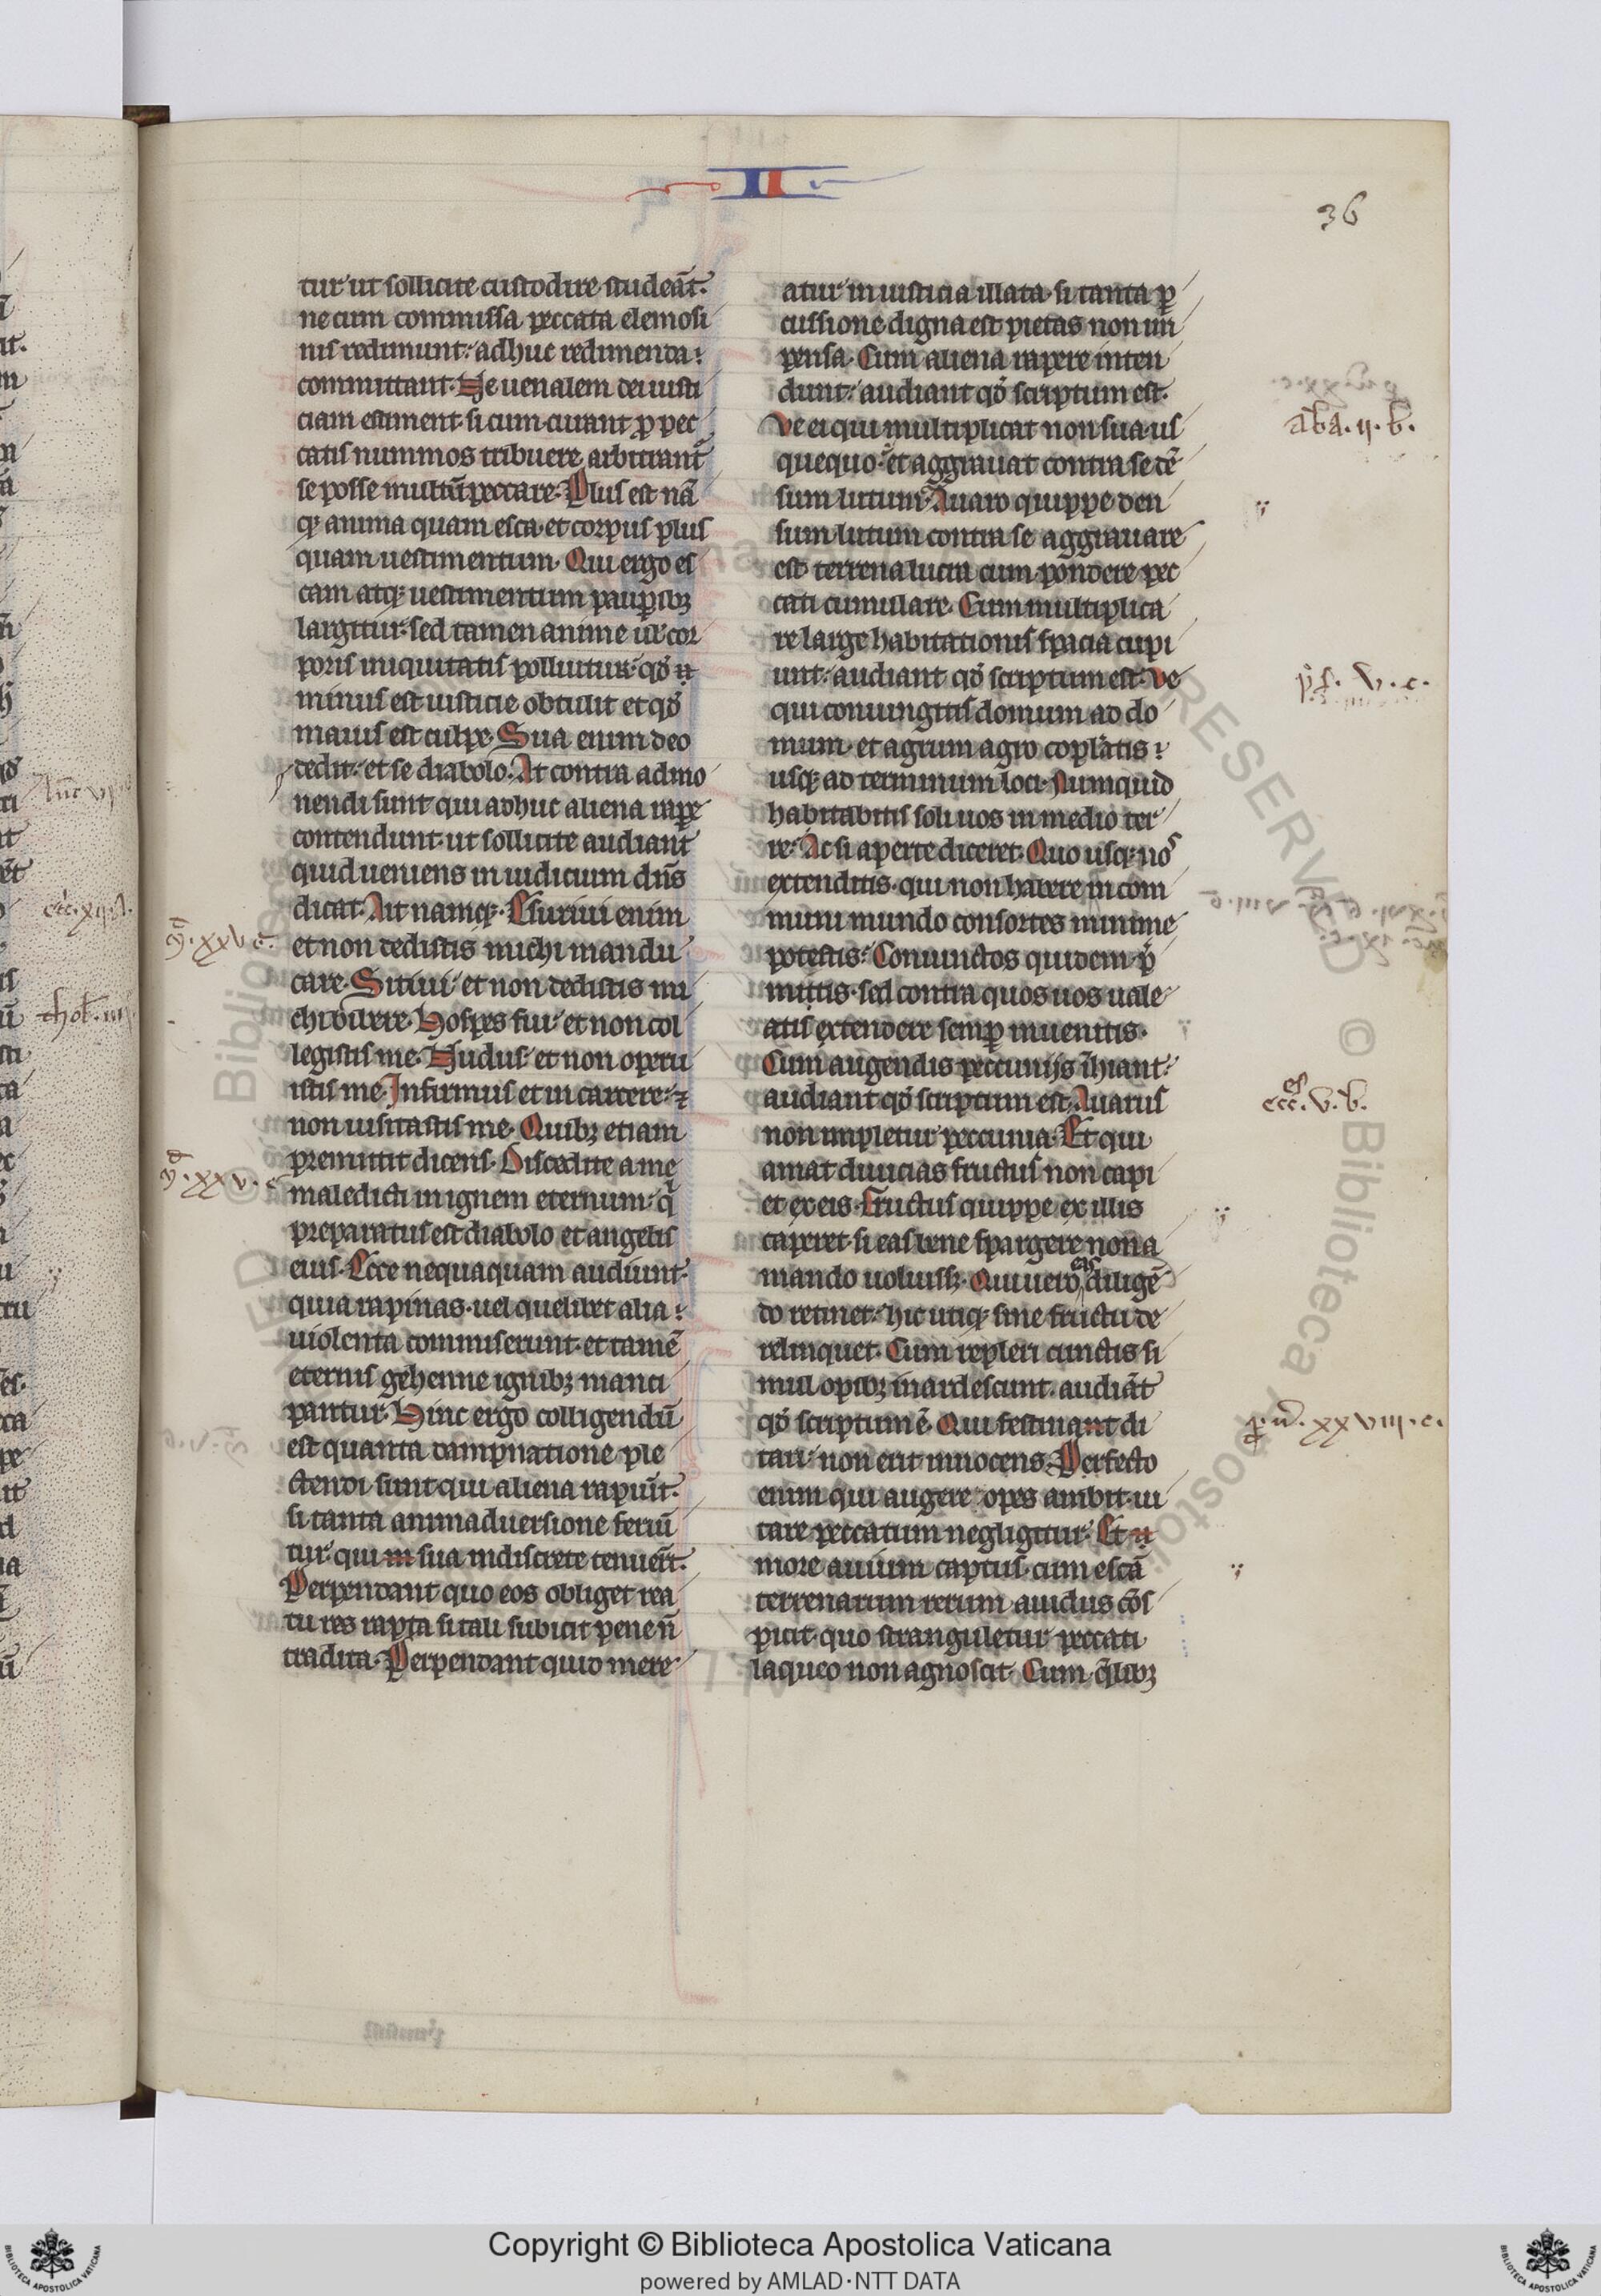 II
36
tur ut sollicite custodire studeāt.
ne cum commissa peccata elemosi
nis redimunt. adhuc redimenda
committant. Ne uenalem dei iusti
ciam estiment. si cum curant ꝓ pec
catis nummos tribuere arbitrant᷑
se posse multū peccare. Plus est nā
qꝫ anima quam esca. et corpus plus
quam uestimentum. Qui ergo es
cam atqꝫ uestimentum pauꝑibꝫ
largitur. sed tamen anime ul̛ cor
poris iniquitatis polluitur. qđ
minus est iusticie obtulit et qđ
maius est culpe. Sua enim deo
dedit. et se diabolo. At contra admo
nendi sunt qui adhuc aliena raꝑe
contendunt. ut sollicite audiant
quid ueniens in iudicium dn̄s
dicat. Ait namqꝫ. Esuriui enim
et non dedistis michi mandu
care. Sitiui et non dedistis mi
chi bibere. Hospes fui et non col
legistis me. Nudus et non operu
istis me. Infirmus et in carcere. ⁊
non uisitastis me. Quibꝫ etiam
premittit dicens. Discedite a me
maledicti in ignem eternum. q̇
preparatus est diabolo et angelis
eius. Ecce nequaquam audiunt.
quia rapinas. uel quelibet alia
uiolenta commiserunt. et tamē
eternis gehenne ignibꝫ manci
pantur. Hinc ergo colligendū
est quanta dampnatione ple
ctendi sunt qui aliena rapiūt.
si tanta animaduersione feriū
tur. qui in sua indiscrete tenuer̄t.
Perpendant quo eos obliget rea
tu res rapta si tali subicit pene n̄
tradita. Perpendant quid mere
atur iniusticia illata. si tanta ꝑ
cussione digna est pietas non im
pensa. Cum aliena rapere inten
dunt. audiant qđ scriptum est.
Ve ei qui multiplicat non sua us
quequo. et aggrauat contra se dē
sum lutum. Auaro quippe den
sum lutum contra se aggrauare
est terrena lucra cum pondere pec
cati cumulare. Cum multiplica
re large habitationis spacia cupi
unt. audiant qđ scriptum est. Ve
qui coniungitis domum ad do
mum. et agrum agro copl̛atis.
usqꝫ ad terminum loci. Numquid
habitabitis soli uos in medio ter
re. Ac si aperte diceret. Quo usqꝫ uos
extenditis. qui non habere in com
muni mundo consortes minime
potestis. Coniunctos quidem p̄
mitis. sed contra quos uos uale
atis extendere semꝑ inuenitis.
Cum augendis peccunijs īhiant.
audiant qđ scriptum est. Auarus
non impletur peccunia. Et qui
amat diuicias fructus non capi
et ex eis. Fructus quippe ex illis
caperet. si eas bene spargere non a
mando uoluissꝫ. Qui uero eas diligē
do retinet. hic utiqꝫ sine fructu de
relinquet. Cum repleri cunctis si
mul opibꝫ inardescunt. audiāt
qđ scriptum ē. Qui festinant di
tari. non erit innocens. Perfecto
enim qui augere opes ambit. ui
tare peccatum negligitur. Et
more auium captus. cum escā
terrenarum rerum auidus cōs
picit. quo stranguletur peccati
laqueo non agnoscit. Cum q̄libꝫ
aba. ij. b.
ys. v. c.
ecc̄es. v. b.
ꝑu͞. xxviij. c.
m̄. xxv. c.
m̄. xxv. c.
Copyright © Biblioteca Apostolica Vaticana
powered by AMLAD·NTT DATA